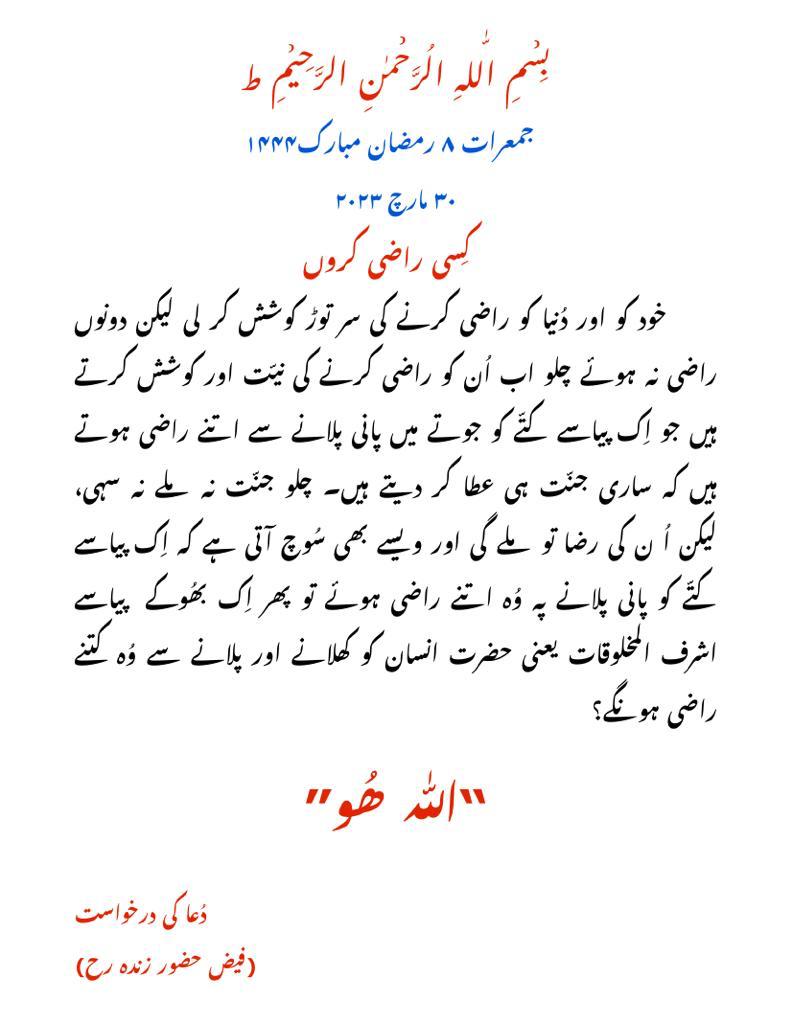 بِسْمِ اللّٰہِ الْرَّحْمٰنِ الرَّحِیْمِ ط
جمعرات ۸ رمضان مبارک۱۴۴۴
۳۰ مارچ ۲۰۲۳
کِسی راضی کروں
خود کو اور دُنیا کو راضی کرنے کی سر توڑ کوشش کر لی لیکن دونوں
راضی نہ ہوئے چلو اب اُن کو راضی کرنے کی نیّت اور کوشش کرتے
ہیں جو اِک پیاسے کتّے کو جوتے میں پانی پلانے سے اتنے راضی ہوتے
ہیں کہ ساری جنّت ہی عطا کر دیتے ہیں۔ چلو جنّت نہ ملے نہ سہی،
لیکن اُ ن کی رضا تو ملے گی اور ویسے بھی سُوچ آتی ہے کہ اِک پیاسے
کتّے کو پانی پلانے پہ وُہ اتنے راضی ہوئے تو پھر اِک بھُوکے پیاسے
اشرف المخلوقات یعنی حضرت انسان کو کھلانے اور پلانے سے وُہ کتنے
راضی ہونگے؟
"اللّٰہ ھُو"
دُعا کی درخواست
(فیض حضور زندہ رح)